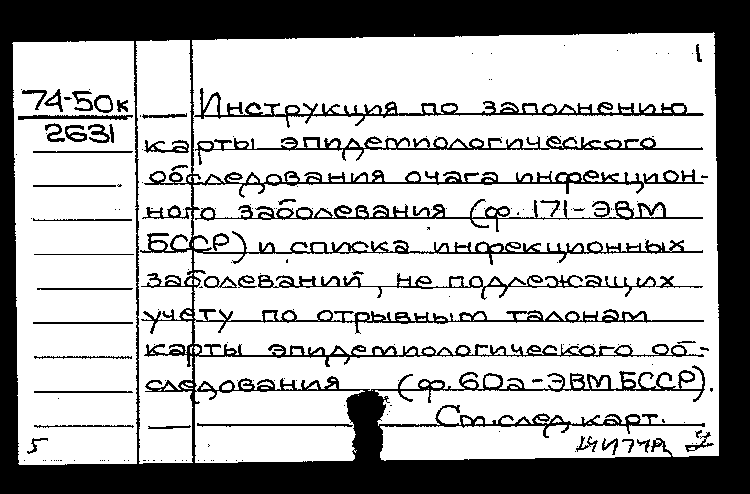 1
74-50к
2631
Инструкция по заполнению
карты эпидемиологического
обследования очага инфекцион-
ного заболевания (ф. 171-ЭВМ
БССР) и списка инфекционных
заболеваний, не подлежащих
учету по отрывным талонам
карты эпидемиологического об-
следования (ф. 60а-ЭВМ БССР).
См. след. карт.
5